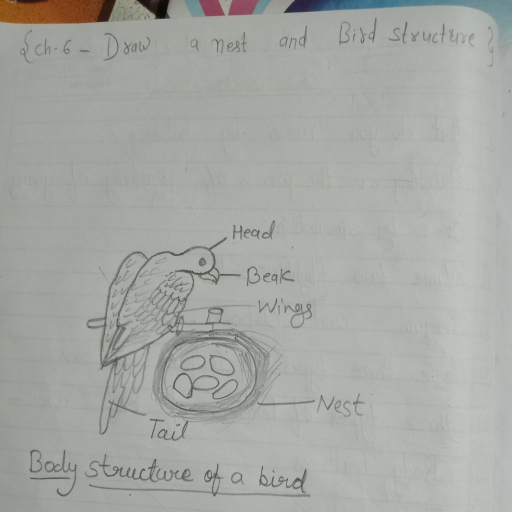 {ch-6 - Draw a nest and Bird structure}
Head
Beak
Wings
Nest
Tail
Body structure of a bird